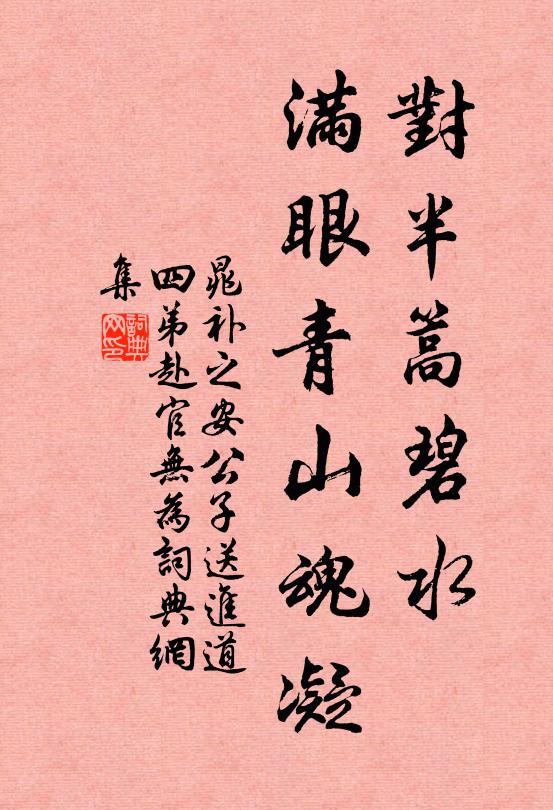 對半篙碧水
滿眼青山魂凝
晁補之安公子送進道
四弟赴官無為詞典網
集
詞典網印